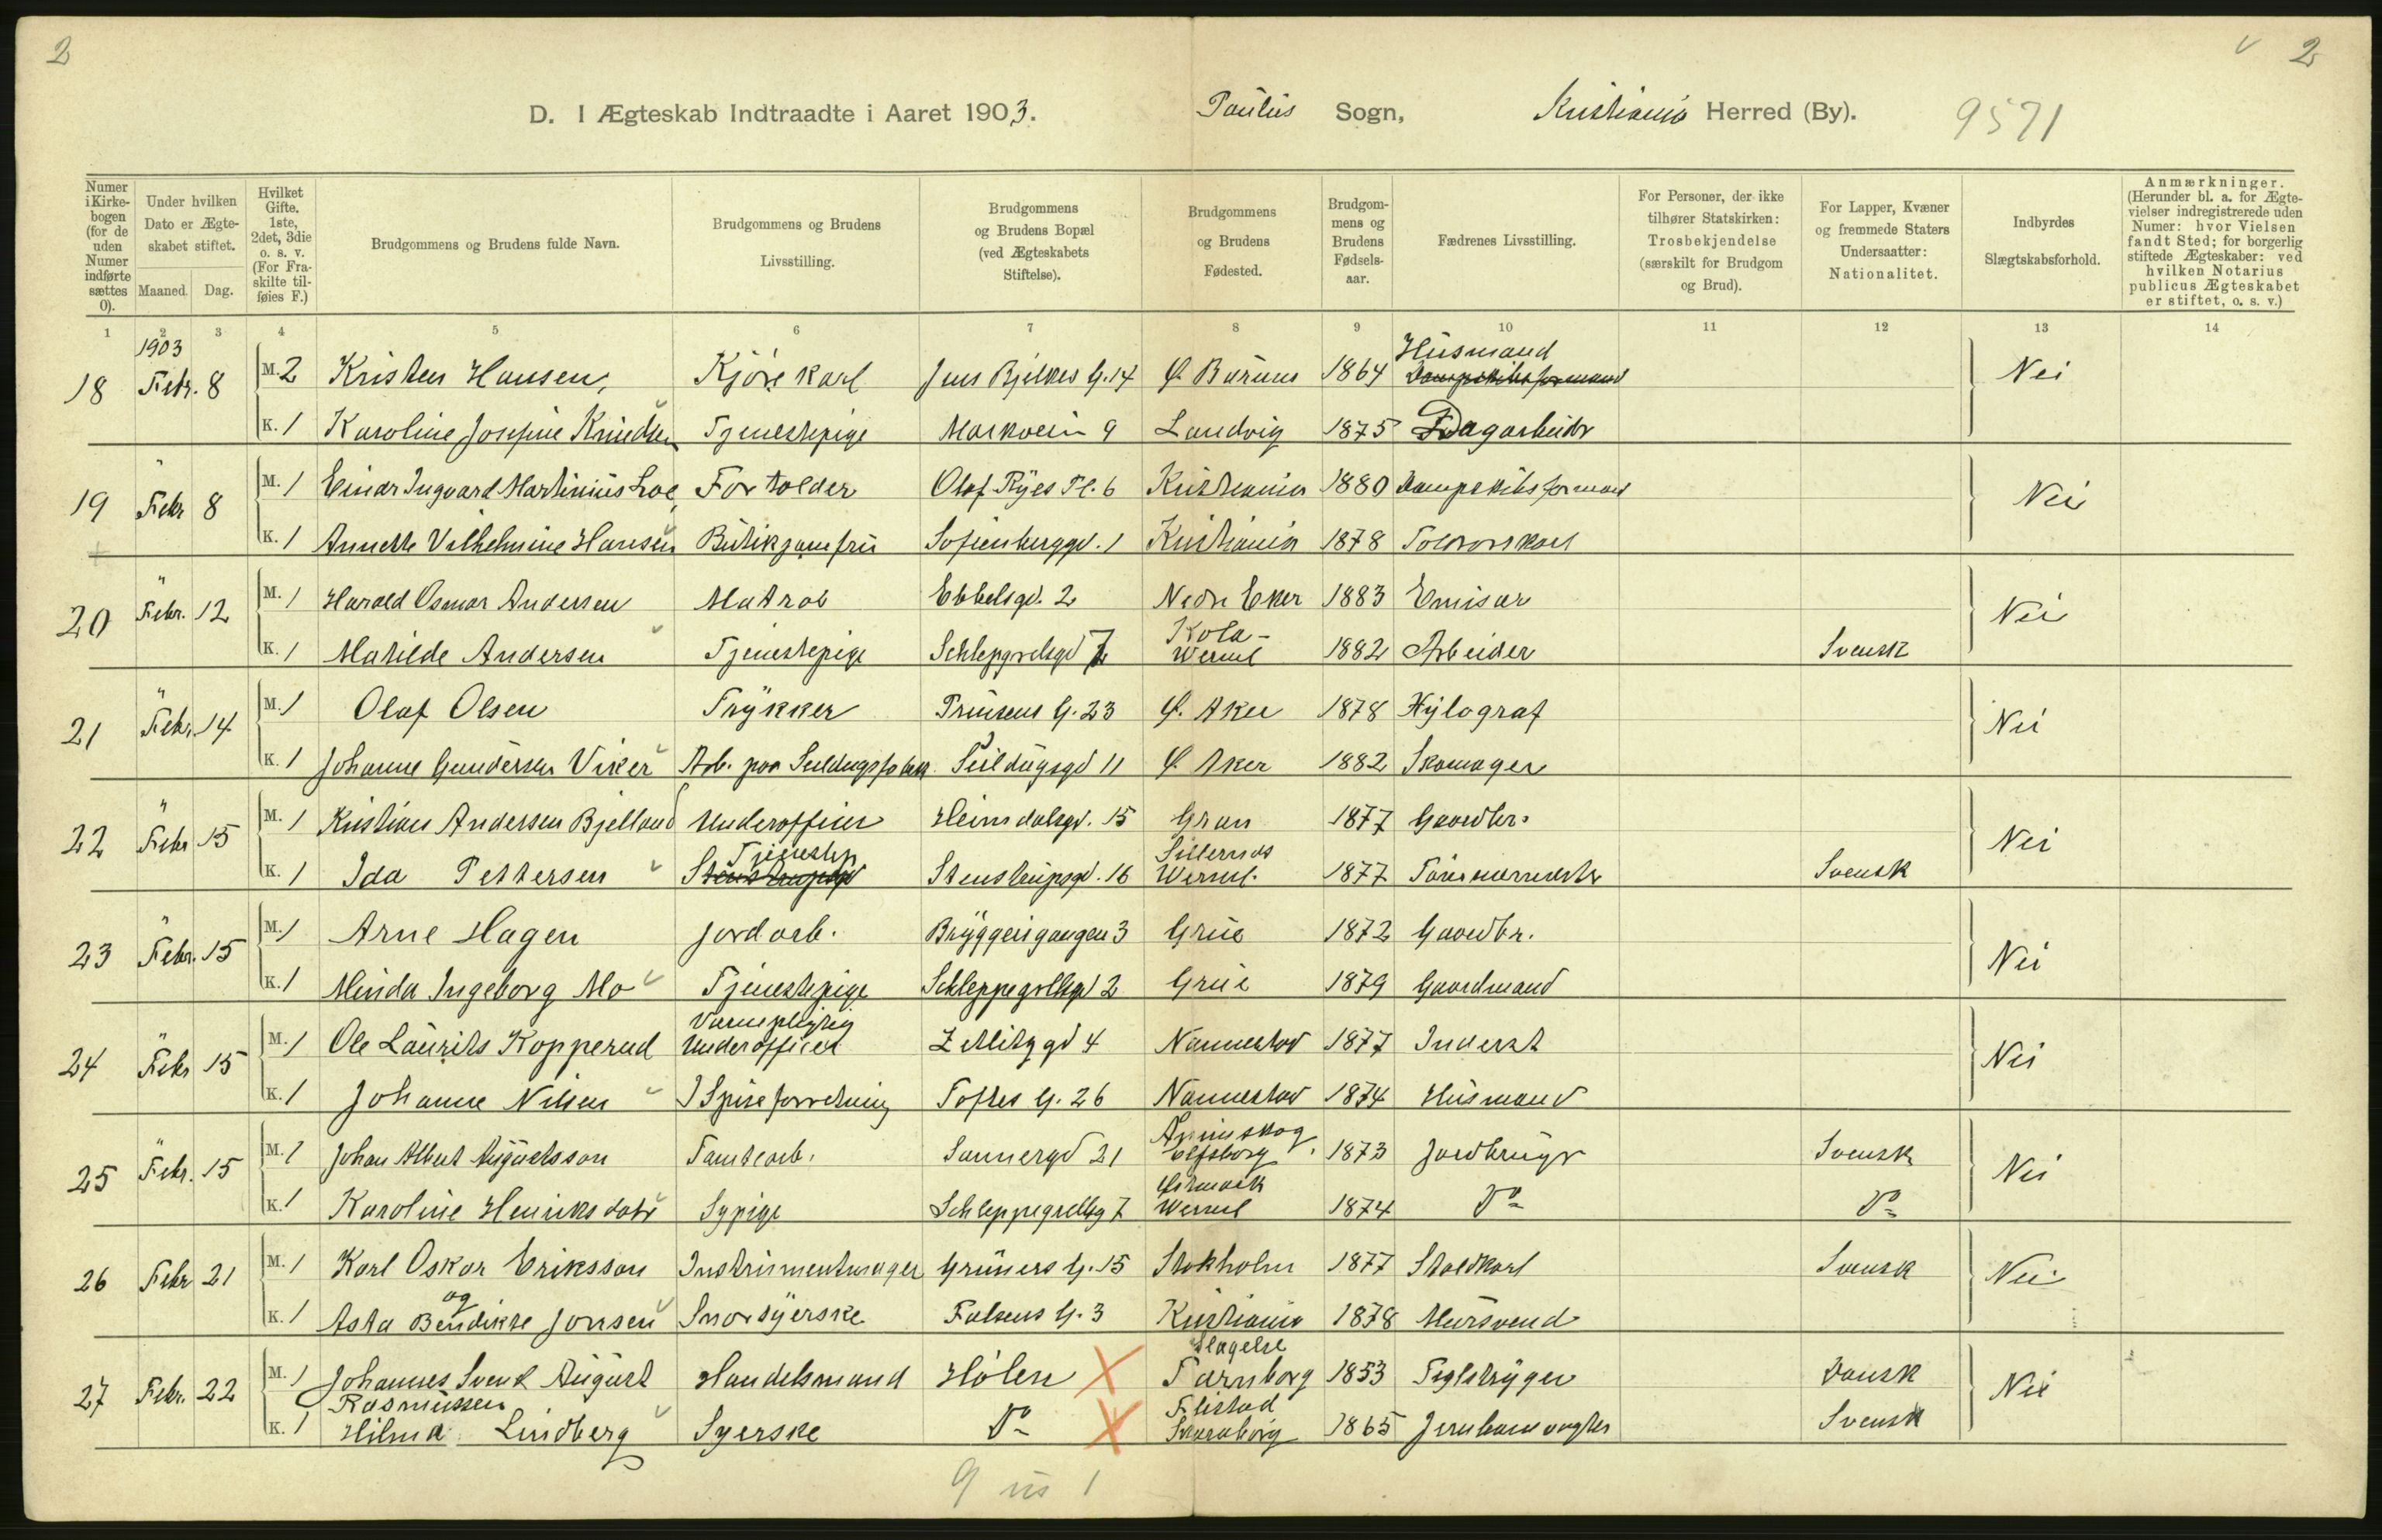 2
v 2
D. I Ægteskab Indtraadte i Aaret 1903. Paulus Sogn, Kristiania Herred (By). 9571
Numer i Kirkebogen (for de uden Numer indførte sættes 0).
Under hvilken Dato er Ægteskabet stiftet.
Maaned. Dag.
Hvilket Gifte. 1ste, 2det, 3die o. s. v. (For Fraskilte tilføies F.)
Brudgommens og Brudens fulde Navn.
Brudgommens og Brudens Livsstilling.
Brudgommens og Brudens Bopæl (ved Ægteskabets Stiftelse).
Brudgommens og Brudens Fødested.
Brudgommens og Brudens Fødselsaar.
Fædrenes Livsstilling.
For Personer, der ikke tilhører Statskirken: Trosbekjendelse (særskilt for Brudgom og Brud).
For Lapper, Kvæner og fremmede Staters Undersaatter: Nationalitet.
Indbyrdes Slægtskabsforhold.
Anmærkninger. (Herunder bl. a. for Ægtevielser indregistrerede uden Numer: hvor Vielsen fandt Sted; for borgerlig stiftede Ægteskaber: ved hvilken Notarius publicus Ægteskabet er stiftet, o. s. v.)
1 2 3 4 5 6 7 8 9 10 11 12 13 14
1903
18 Febr. 8 M. 2 Kristen Hansen, Kjørekarl Jens Bjelkes G. 14 Ø. Bærum 1864 Husmand Nei
K. 1 Karoline Josefine Knudsen Tjenestepige Markvein 9 Landvig 1875 Dagarbeidr
19 " Febr 8 M. 1 Einar Ingvard Martinius Loe, Fortolder Olaf Ryes Pl. 6 Kristiania 1880 Dampskibsformand Nei
K. 1 Annette Vilhelmine Hansen Butikjomfru Sofienberggd. 1 Kristiania 1878 Toldorskarl
20 " Febr. 12 M. 1 Harald Osmar Andersen Matros Ebbelsgd. 2 Nedre Eker 1883 Emisær Nei
K. 1 Matilde Andersen Tjenestepige Schlepgrelsgd 7 Kola- Werml 1882 Arbeider Svensk
21 " Febr. 14 M. 1 Olaf Olsen Trykker Prinsens G. 23 Ø. Aker 1878 Xylograf Nei
K. 1 Johanne Gundersen Viker Arb. paa Seildugsfabr. Seildugsgd 11 Ø Aker 1882 Skomager
22 " Febr 15 M. 1 Kristian Andersen Bjelland Underofficer Heimdalsgd. 15 Gran 1877 Gaardbr. Nei
K. 1 Ida Pettersen Tjenestep Stenstrupsgd. 16 Sillerud Werml. 1877 Svensk
23 " Febr. 15 M. 1 Arne Hagen Jordarb. Bryggerigangen 3 Grue 1872 Gaardbr. Nei
K. 1 Minda Ingeborg Mo Tjenestepige Schleppegrellsgd 2 Grue 1879 Gaardmand
24 " Febr 15 M. 1 Ole Laurits Kopperud Vernepligtig Underofficer Zetlitzgd 4 Nannestad 1877 Inderst Nei
K. 1 Johanne Nilsen I Spiseforretning Toftes G. 26 Nannestad 1874 Husmand
25 " Febr. 15 M. 1 Johan Albert Augustsson Tomtearb. Sannergd 21 Ånimskog Elfsborg 1873 Jordbruger Svensk Nei
K. 1 Karoline Henriksdatr Sypige Schleppegrellsg 7 Werml 1874 Do Do
26 Febr 21 M. 1 Karl Oskar Eriksson Instrumentmager Grüners G. 15 Stokholm 1877 Staldkarl Svensk Nei
K. 1 Asta og Bendikte Jonsen Snorsyerske Falsens G. 3 Kristiania 1878 Mursvend
27 Febr. 22 M. 1 Johannes Svend August Rasmussen Handelsmand Hølen X Slagelse Tarnborg 1853 Teglstryger Dansk Nei
K. 1 Hilma Lindberg Syerske Do X Flistad Skaraborg 1865 Jernbanevogter Svensk
9 us 1